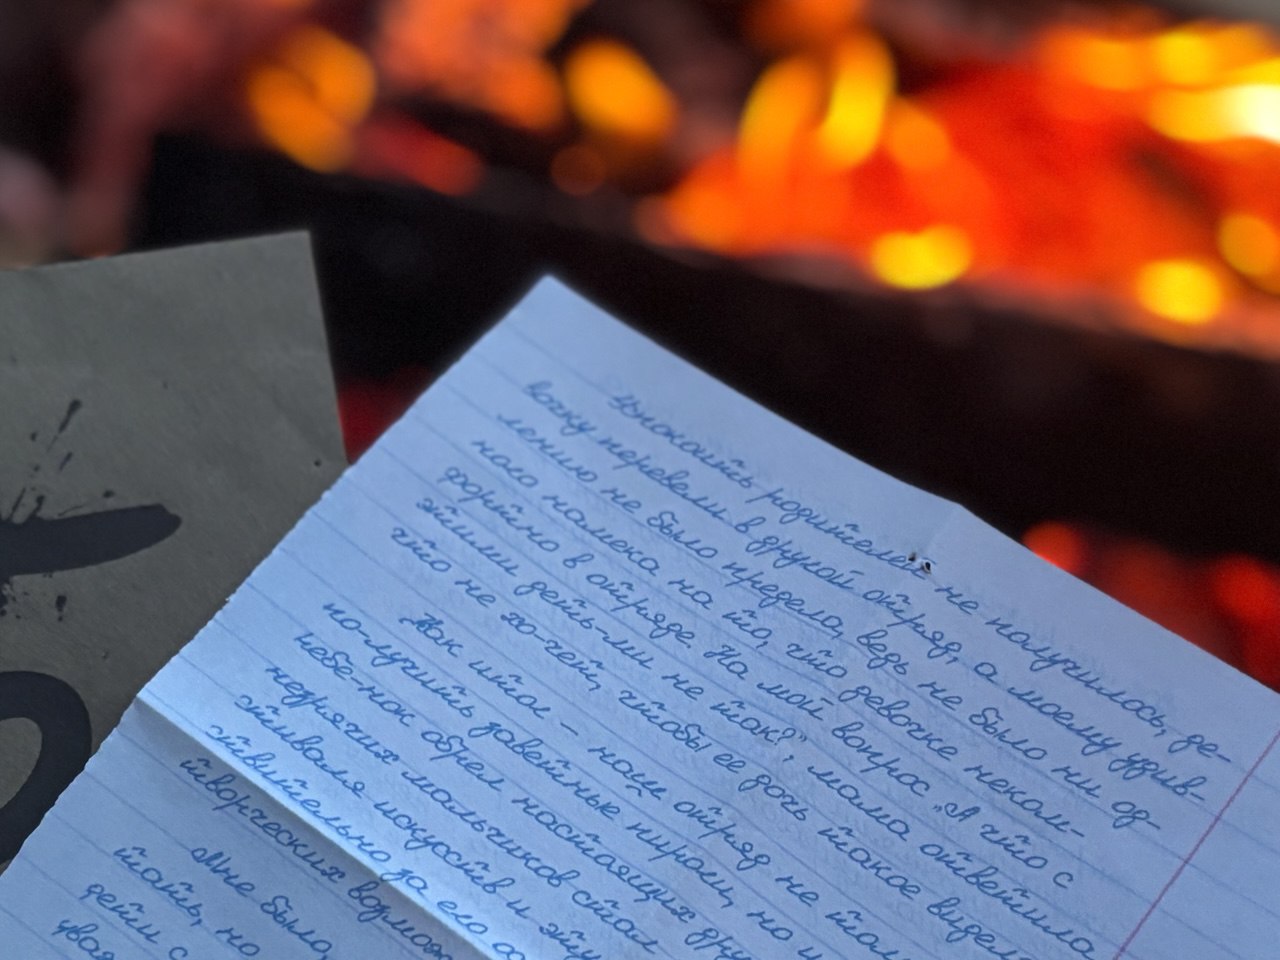 Успокоить родителей не получилось, де-
вочку перевели в другой отряд, а моему удив-
лению не было предела, ведь не было ни од-
ного намека на то, что девочке неком-
фортно в отряде. На мой вопрос „А что с
этими деть-ми не так?" мама ответила
что не хо-чет, чтобы ее дочь такое видела
Как итог – наш отряд не
по-лучил заветные пираты, но
небе-нок обрел настоящих
недрячих мальчиков стал
творческих
Мне было,
тать, но
дети с